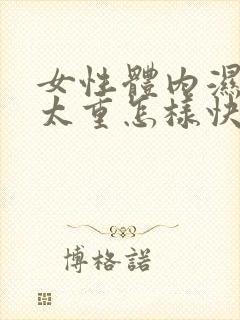 女性體內濕
太重怎樣快
博格諾